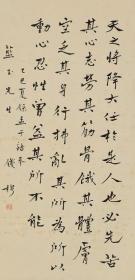 天之將降大任於是人也必先苦
其心志勞其筋骨餓其體膚
空乏其身行拂亂其所為所以
動心忍性曾益其所不能
夏錄孟子語奉
先生 錢穆